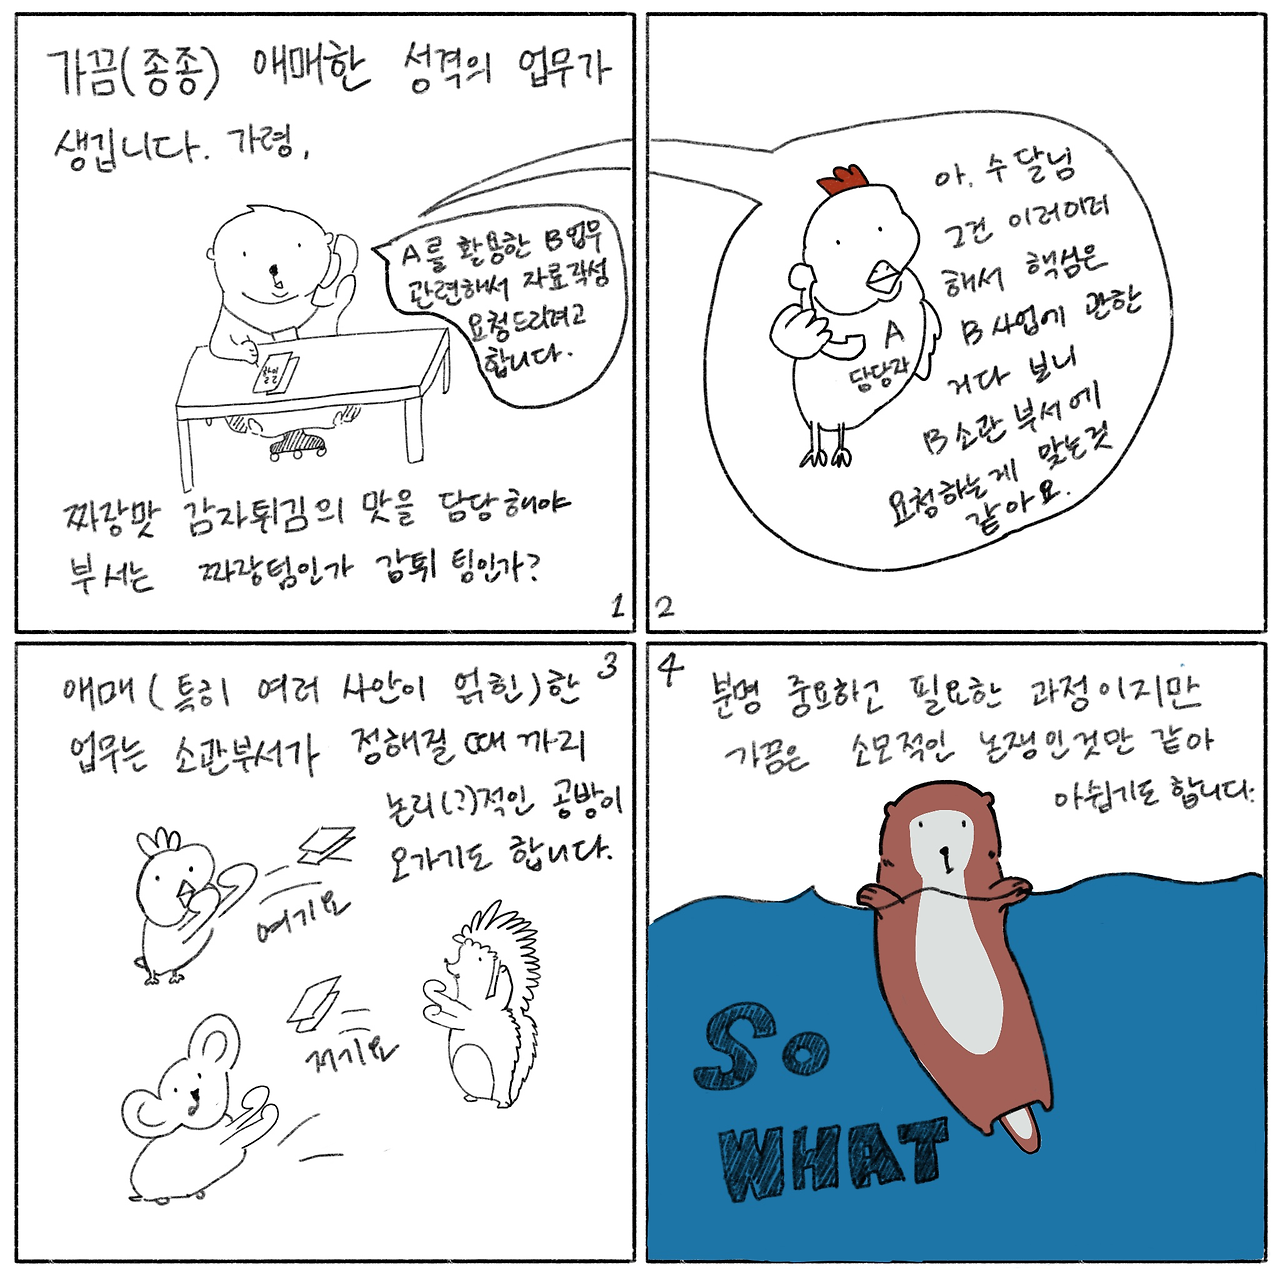 가끔(종종) 애매한 성격의 업무가
생깁니다. 가령,
A를 활용한 B업무
관련해서 자료작성
요청드리려고
합니다.
짜장맛 감자튀김의 맛을 담당해야
부서는 짜장팀인가 감튀 팀인가?
1
아, 수달님
그건 이러이러
해서 핵심은
B사업에 관한
거다 보니
B소관 부서에
요청하는게 맞는것
같아요.
A
담당자
2
3
애매(특히 여러 사안이 얽힌)한
업무는 소관부서가 정해질 때 까지
논리(?)적인 공방이
오가기도 합니다.
여기요
저기요
4
분명 중요하고 필요한 과정이지만
가끔은 소모적인 논쟁인것만 같아
아쉽기도 합니다.
So
WHAT